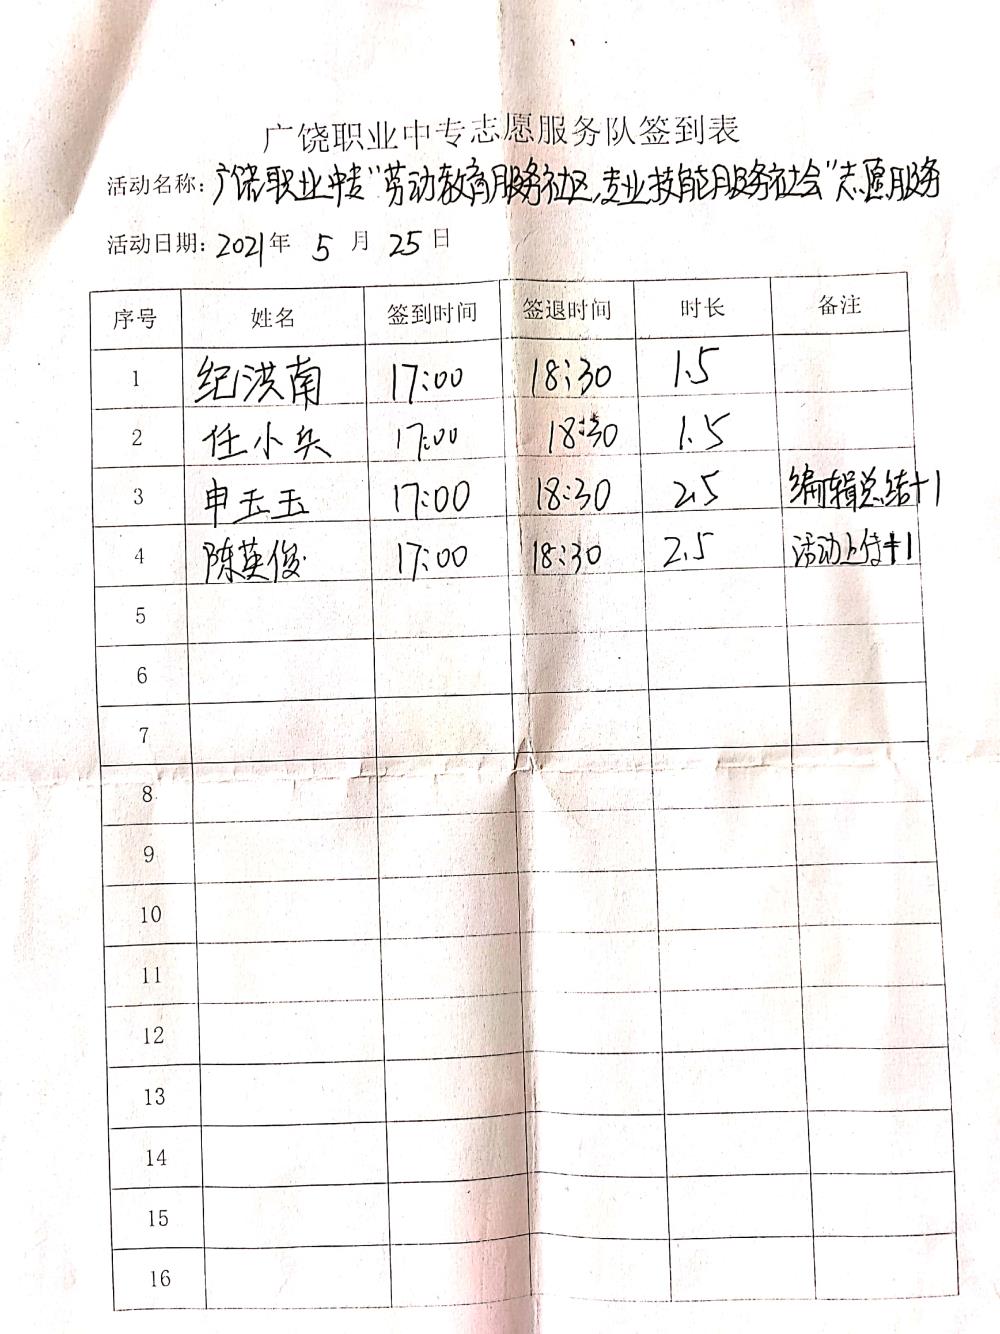 广饶职业中专志愿服务队签到表
活动名称：广饶职业中专“劳动教育服务社区，专业技能服务社会”志愿服务
活动日期：2021年 5 月 25 日
序号 姓名 签到时间 签退时间 时长 备注
1 纪洪南 17:00 18:30 1.5
2 任小兵 17:00 18:30 1.5
3 申玉玉 17:00 18:30 2.5 编辑总结+1
4 陈英俊 17:00 18:30 2.5 活动上传+1
5
6
7
8
9
10
11
12
13
14
15
16